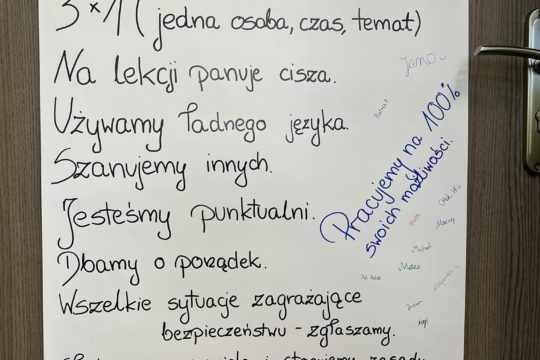 3×1 (jedna osoba, czas, temat)
Na lekcji panuje cisza.
Używamy ładnego języka.
Szanujemy innych.
Jesteśmy punktualni.
Dbamy o porządek.
Wszelkie sytuacje zagrażające
bezpieczeństwu - zgłaszamy.
i stosujemy zasady
Pracujemy na 100%
swoich możliwości.
Michał
Mateo